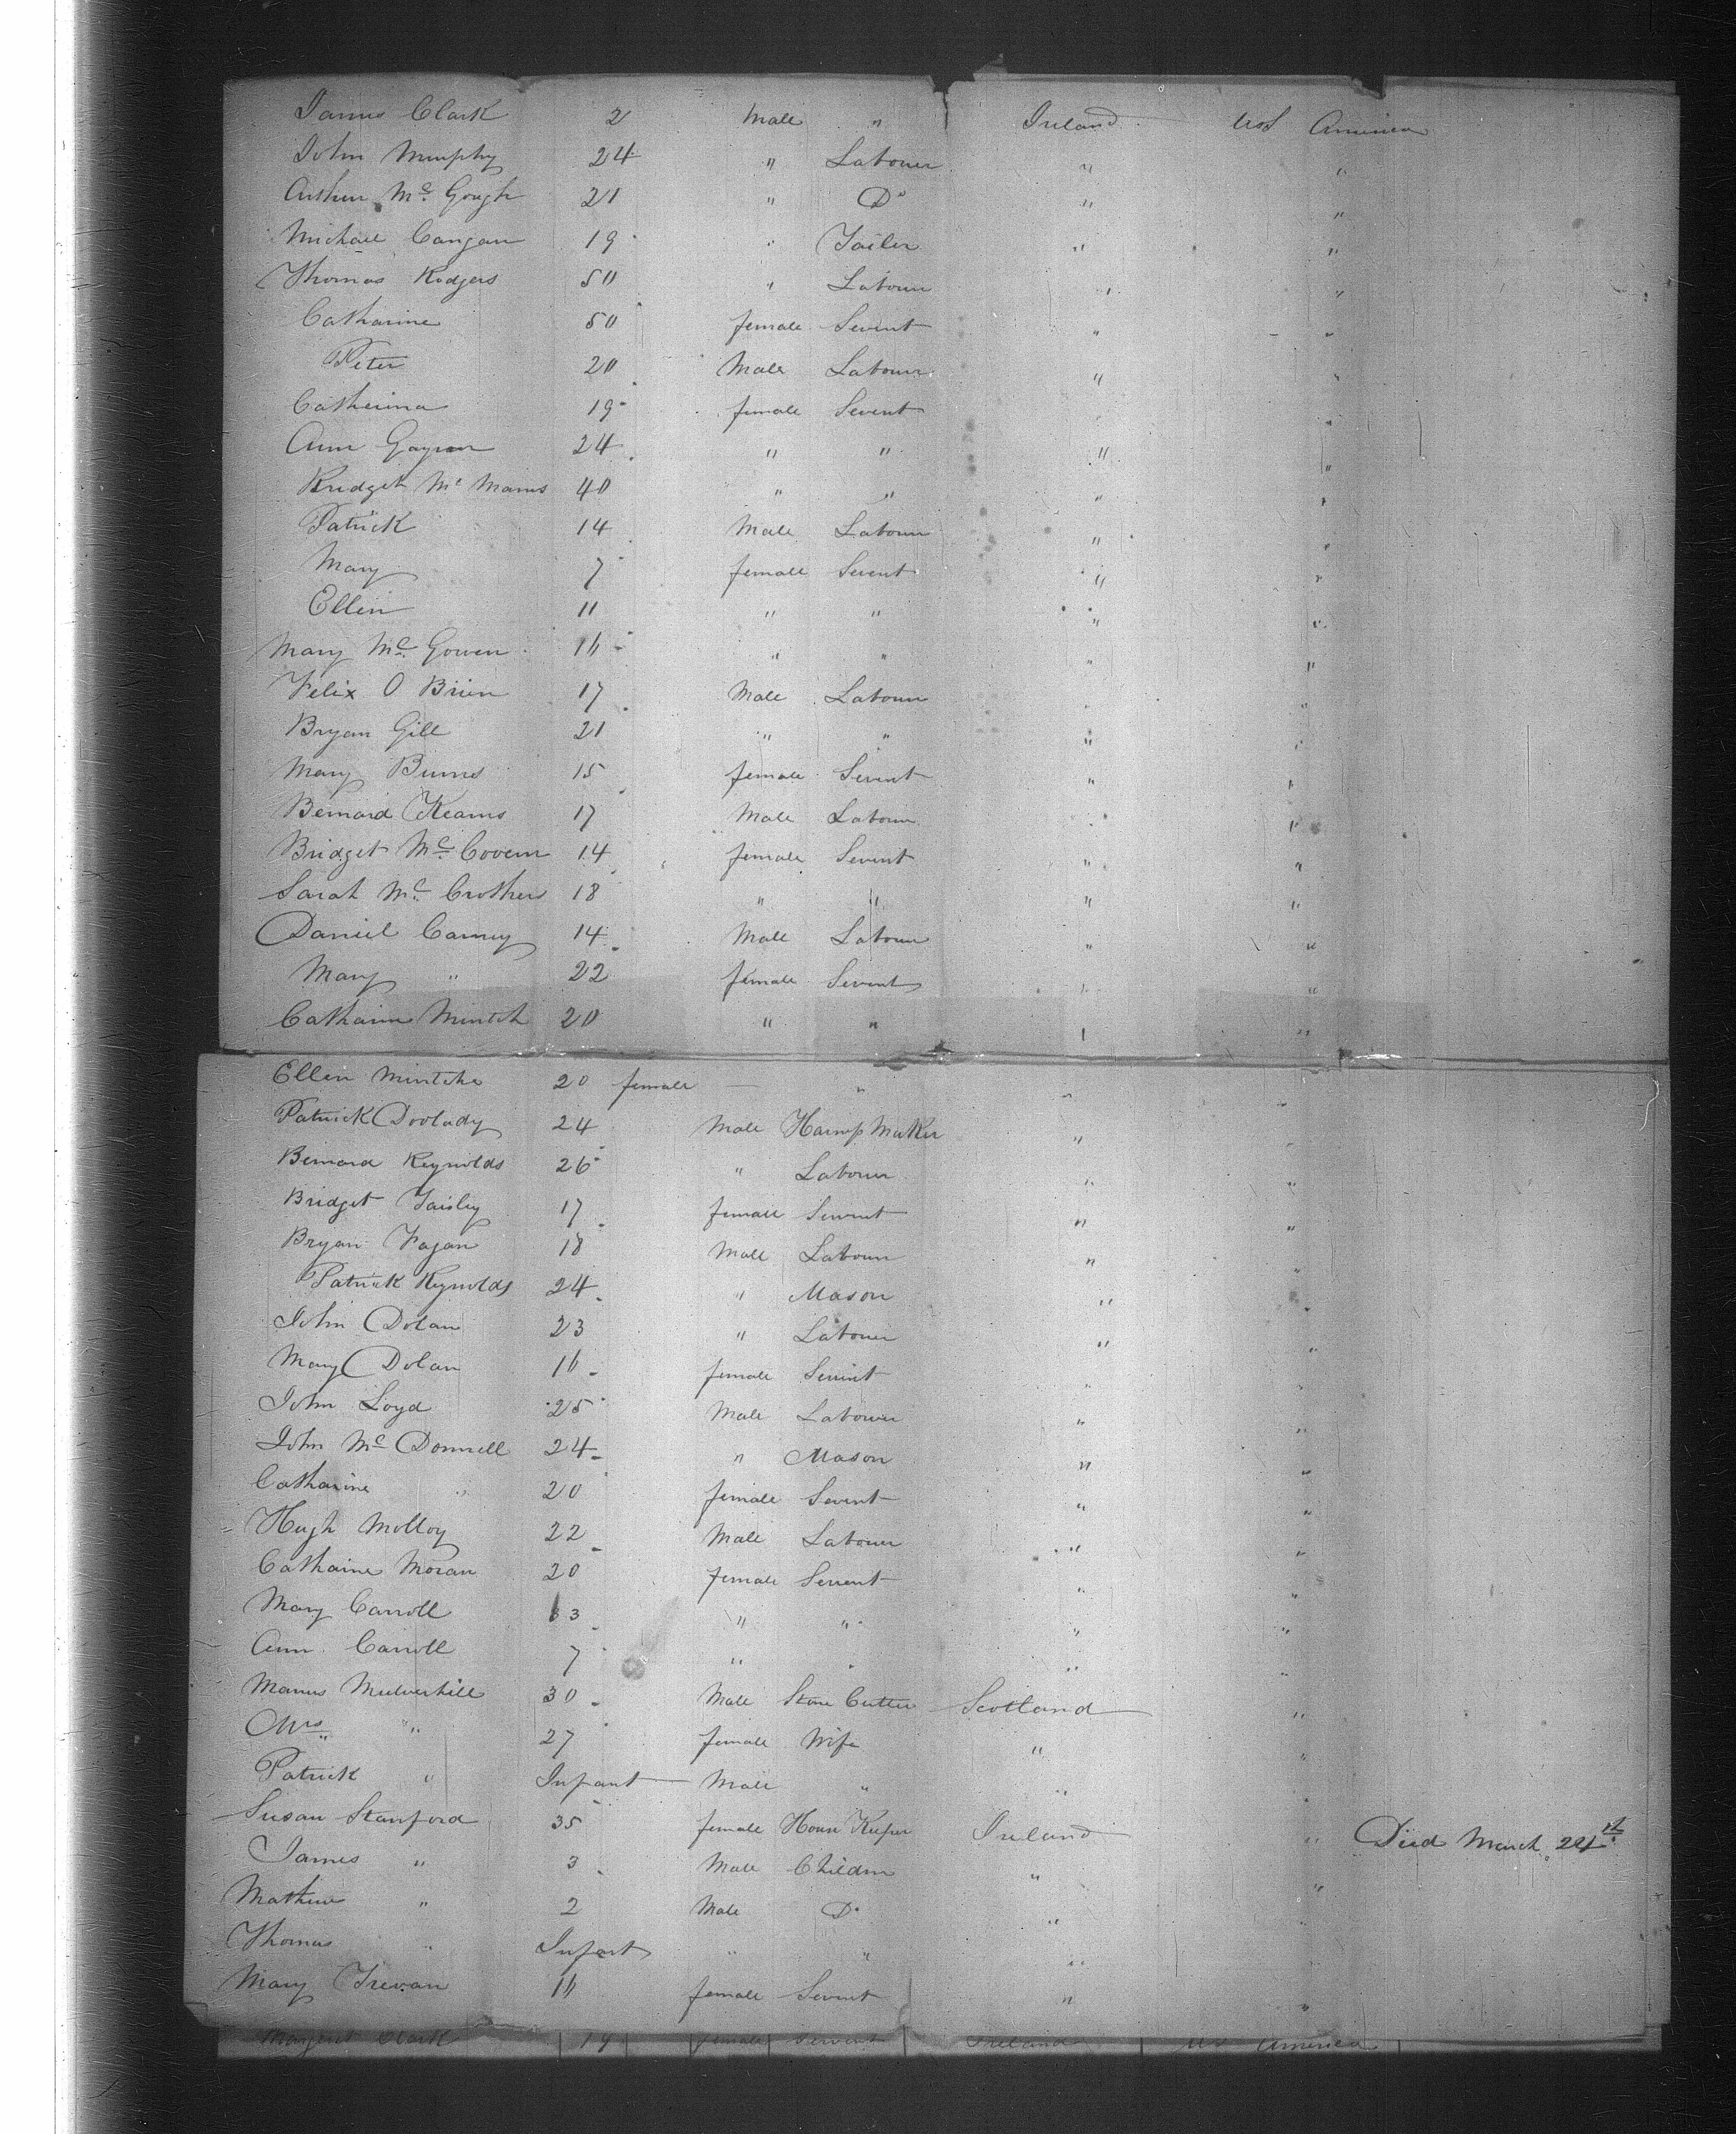 James Clark 2 Male " Ireland US America
John Murphy 24 " Labourer " "
Arthur Mc Gough 21 " Do " "
Michael Cangan 19 " Tailer " "
Thomas Rodgers 50 " Labourr " "
Catharine 50 female Servent " "
Peter 20 Male Labourr " "
Catherina 19 female Servent "
Ann 24 " " " "
Bridget Mc Manus 40 " " " "
Patrick 14 Male Labourr " "
Mary 7 female Servent " "
Ellen 11 " " " "
Mary Mc Gowen 16 " " " "
Felix O Brien 17 Male Labourr " "
Bryan Gill 21 " " " "
Mary Burns 15 female Servent " "
Bernard Kearns 17 Male Labourr " "
Bridget Mc Covern 14 female Servent " "
Sarah Mc Crothers 18 " " " "
Daniel Carney 14 Male Labourr " "
Mary " 22 female Servent " "
Catharine Mintch 20 " " " "
Ellen Mintche 20 female — " " "
Patrick Doolady 24 Male Harnss Maker " "
Bernard Reynolds 26 " Labourr " "
Bridget 17 female Servent " "
Bryan Fagan 18 Male Labourr " "
Patrick Reynolds 24 " Mason " "
John Dolan 23 " Labourer " "
Mary Dolan 16 female Servint " "
John Loyd 25 Male Labourer " "
John Mc Donnell 24 " Mason " "
Catharine " 20 female Servent " "
Hugh Molloy 22 Male Labourer " "
Catharine Moran 20 female Servent " "
Mary Carroll 33 " " " "
Ann Carroll 7 " " " "
Manus Mulverhill 30 Male Stone Cutter Scotland "
Mrs " 27 female Wife " "
Patrick " Infant Male " " "
Susan Stanford 35 female House Keeper Ireland " Died March
James " 3 Male Childrn " "
Mathew " 2 Male Do " "
Thomas " Infant " " " "
Mary Trevan 16 female Servent " "
Margret Clark 19 female Servent Ireland US America